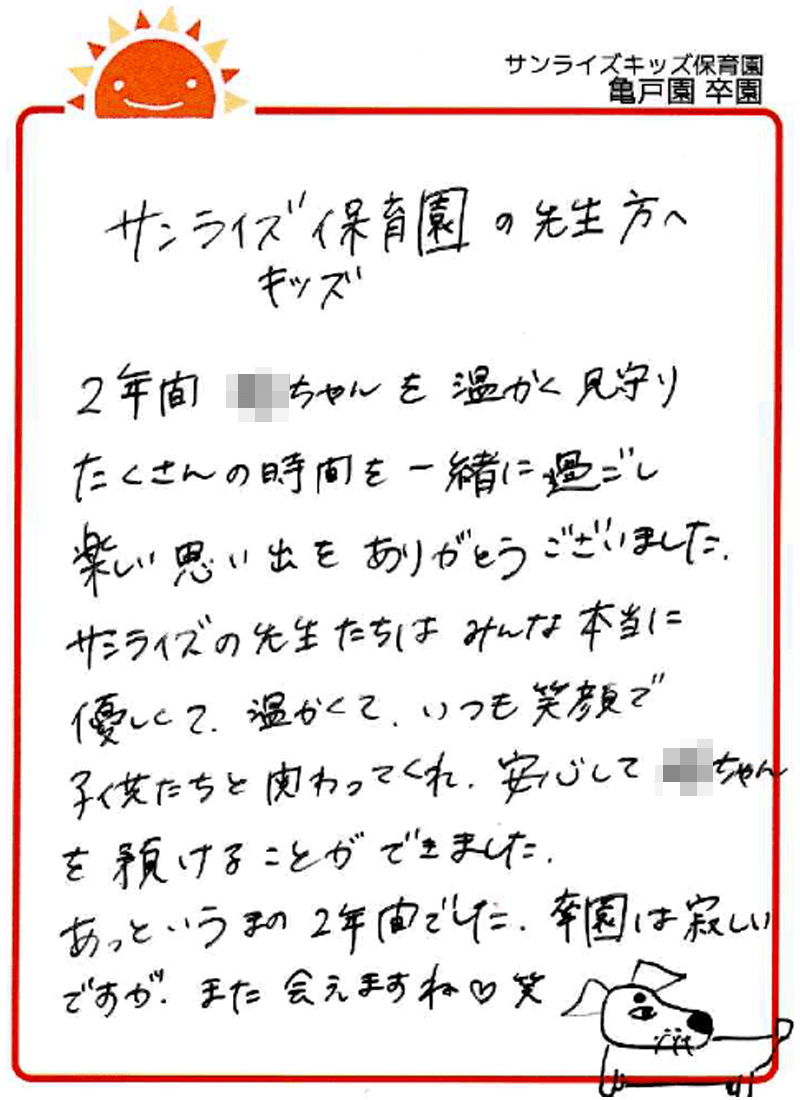 サンライズキッズ保育園
亀戸園 卒園
サンライズ保育園の先生方へ
キッズ
2年間 ちゃんを温かく見守り
たくさんの時間を一緒に過ごし
楽しい思い出をありがとうございました.
サンライズの先生たちはみんな本当に
優しくて.温かくて.いつも笑顔で
子供たちと関わってくれ.安心して ちゃん
を預けることができました.
あっというまの2年間でした.卒園は寂しい
ですが.また会えますね♡笑